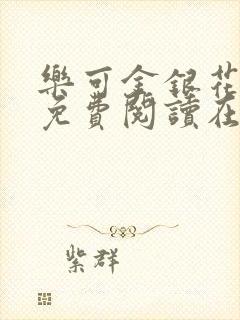 樂可金銀花
免費閱讀在
紫群